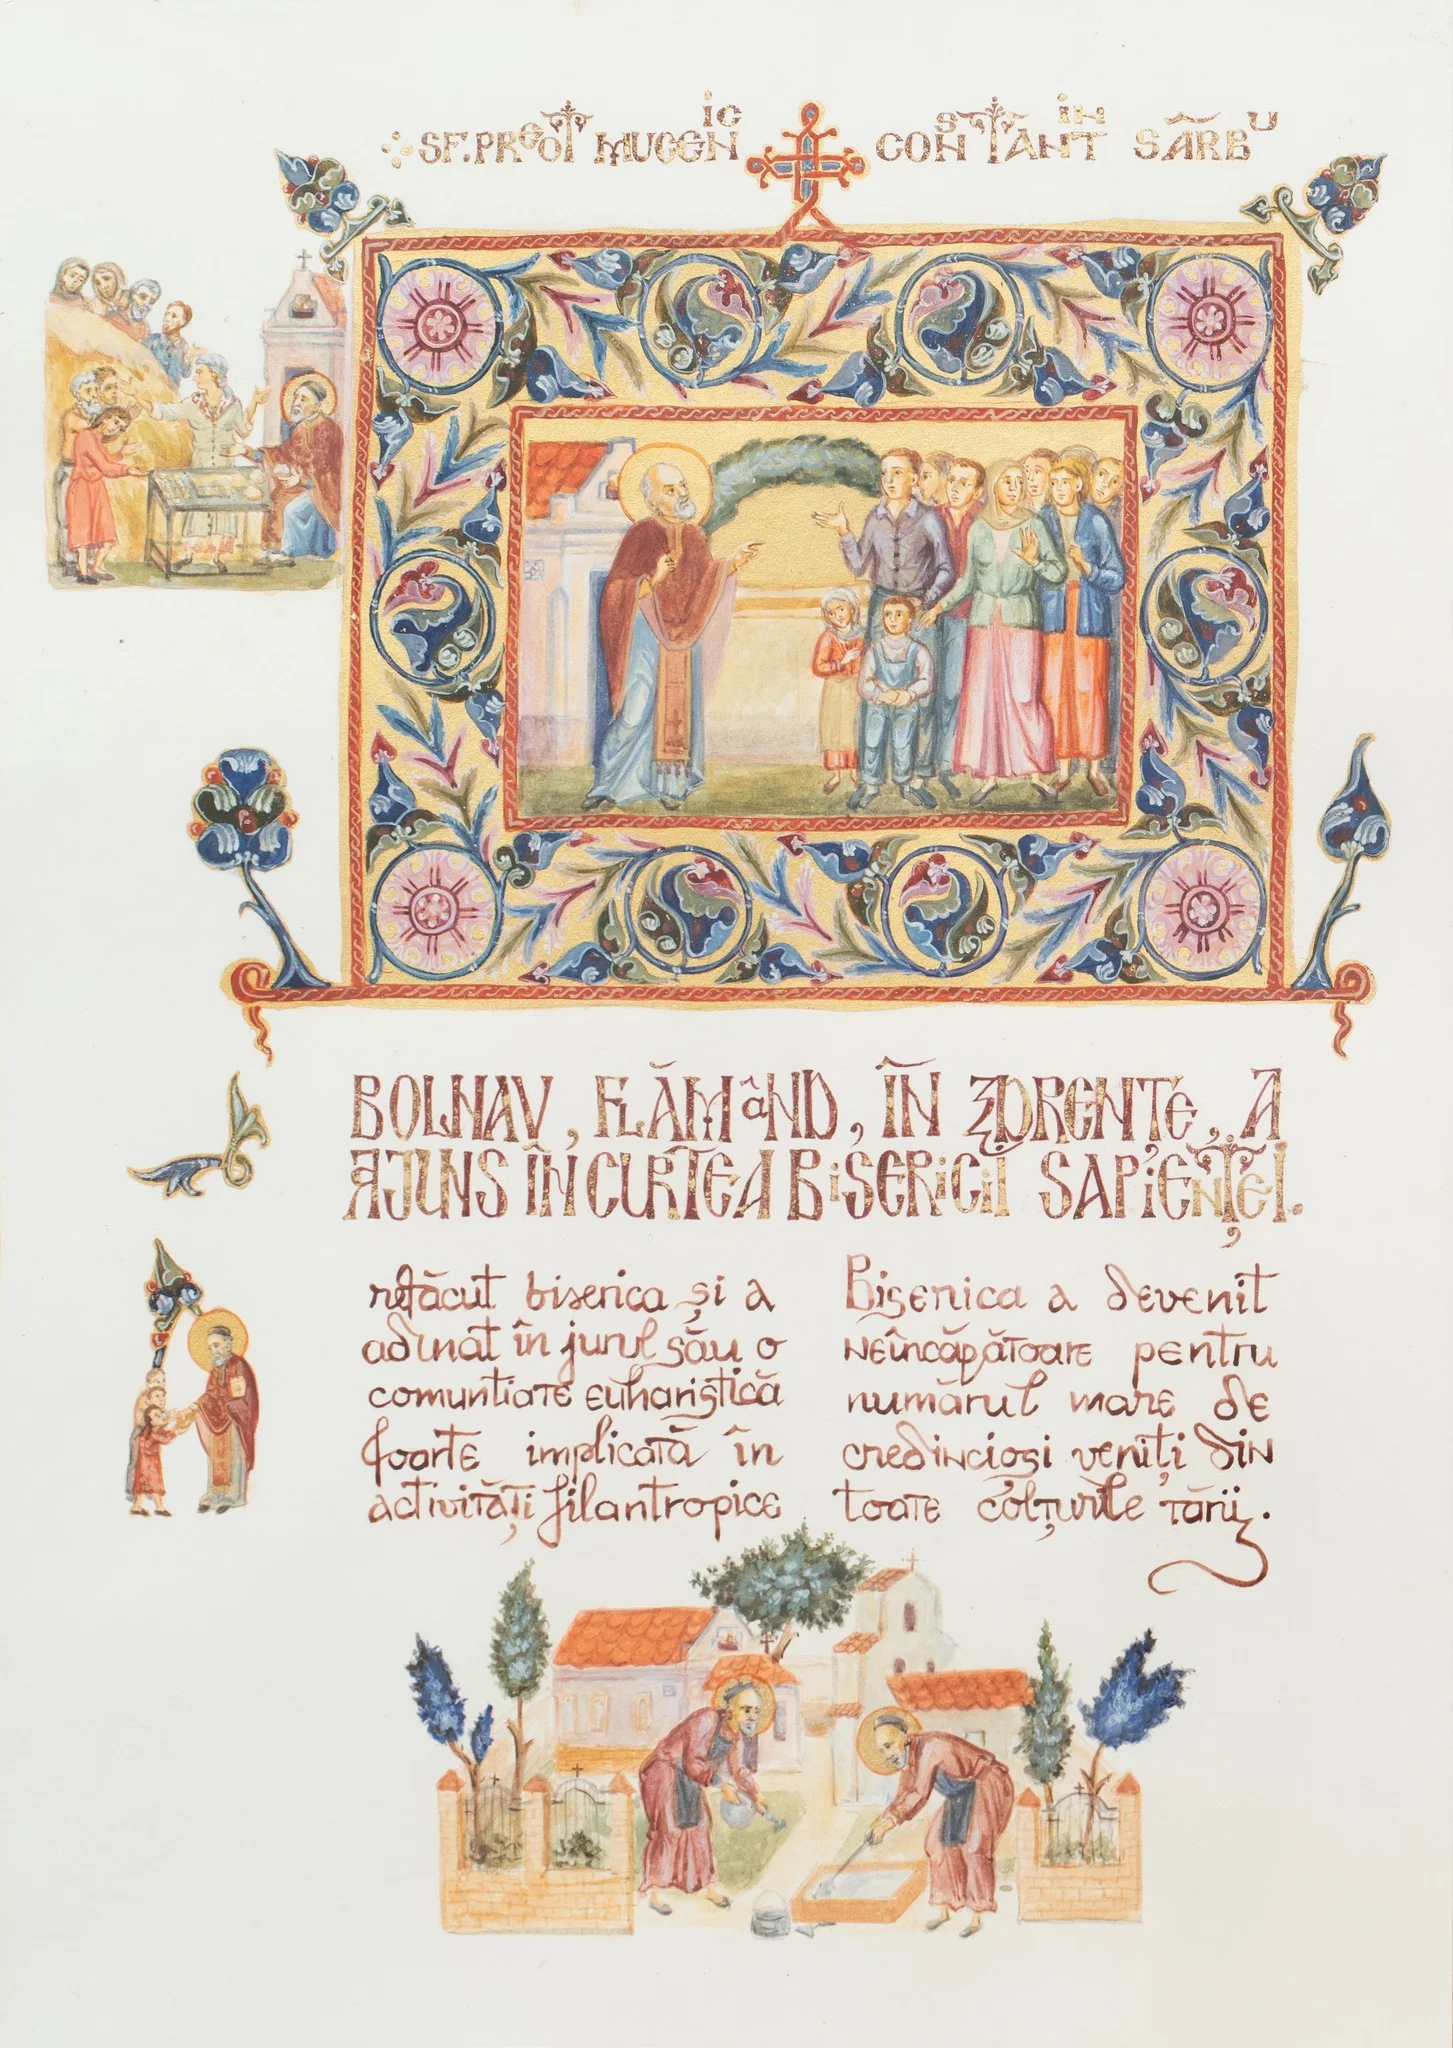 SF. PREOT MUCENIC CONSTANTIN SÂRBU
BOLNAV, FLĂMÂND, ÎN ZDRENȚE, A
AJUNS ÎN CURTEA BISERICII SAPIENȚEI.
A refăcut biserica și a
adunat în jurul său o
comuntiate euharistică
foarte implicată în
activități filantropice
Biserica a devenit
neîncăpătoare pentru
numărul mare de
credincioși veniți din
toate colțurile țării.